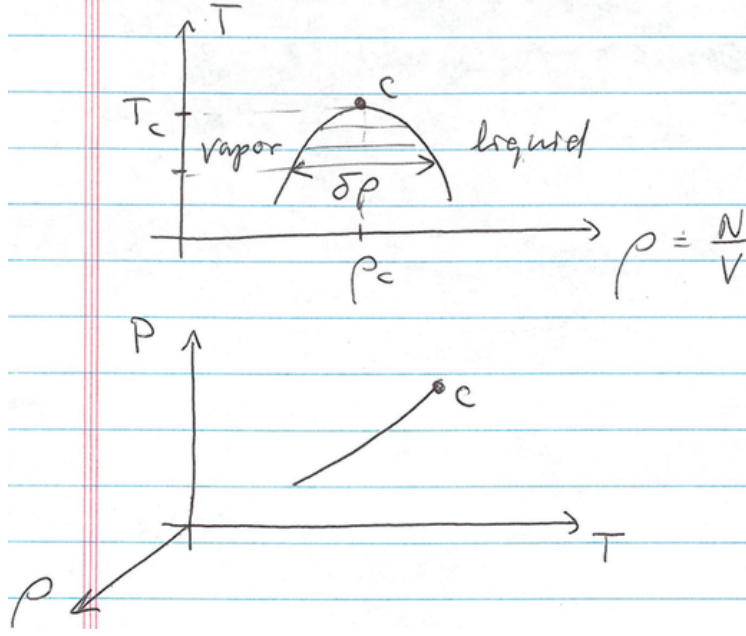 T
C
T_c
vapor
liquid
δρ
ρ_c
ρ = N/V
P
C
T
ρ